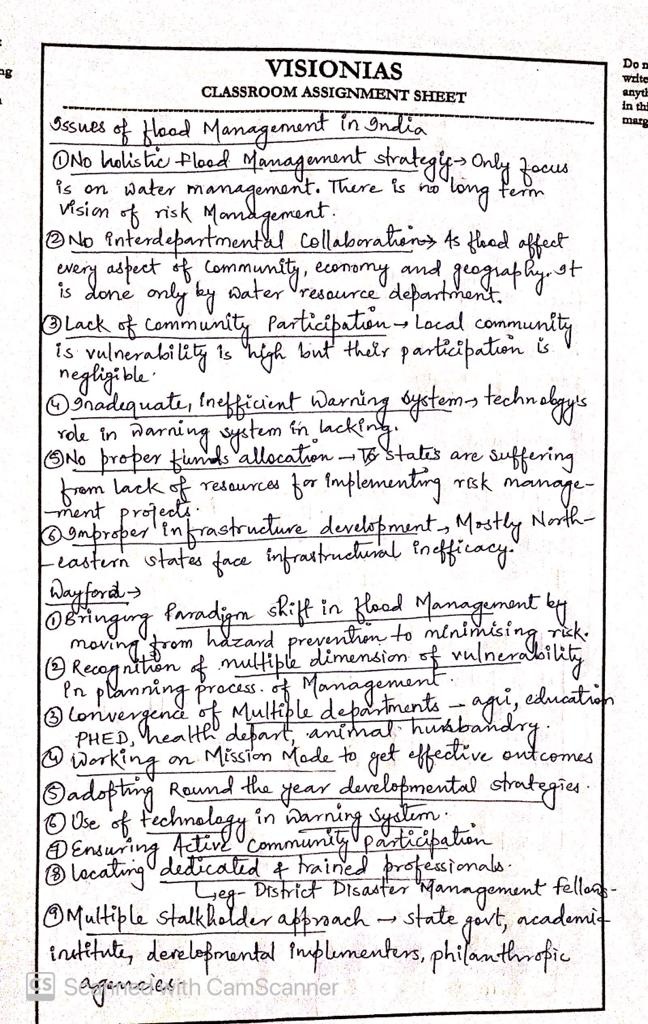 Do n
write
anyth
in thi
marg
ng
VISIONIAS
CLASSROOM ASSIGNMENT SHEET
Issues of flood Management in India
① No holistic flood Management strategy → Only focus
is on water management. There is no long term
vision of risk Management.
② No interdepartmental collaboration → As flood affect
every aspect of community, economy and geography. It
is done only by water resource department.
③ Lack of Community Participation → Local community
is vulnerability is high but their participation is
negligible.
④ Inadequate, inefficient Warning system → technology's
role in warning system in lacking.
⑤ No proper funds allocation → States are suffering
from lack of resources for implementing risk manage-
-ment projects.
⑥ Improper infrastructure development → Mostly North-
-eastern states face infrastructural inefficacy.
Wayford →
① Bringing Paradigm shift in flood Management by
moving from hazard prevention to minimising risk.
② Recognition of multiple dimension of vulnerability
in planning process of Management.
③ Convergence of Multiple departments - agri, education
PHED, health depart, animal husbandry.
④ Working on Mission Mode to get effective outcomes
⑤ adopting Round the year developmental strategies.
⑥ Use of technology in warning system.
⑦ Ensuring Active Community participation
⑧ Locating dedicated & trained professionals.
↳ eg- District Disaster Management fellows-
⑨ Multiple stalkholder approach → state govt, academic
institute, developmental implementers, philanthropic
agencies.
CS Scanned with CamScanner